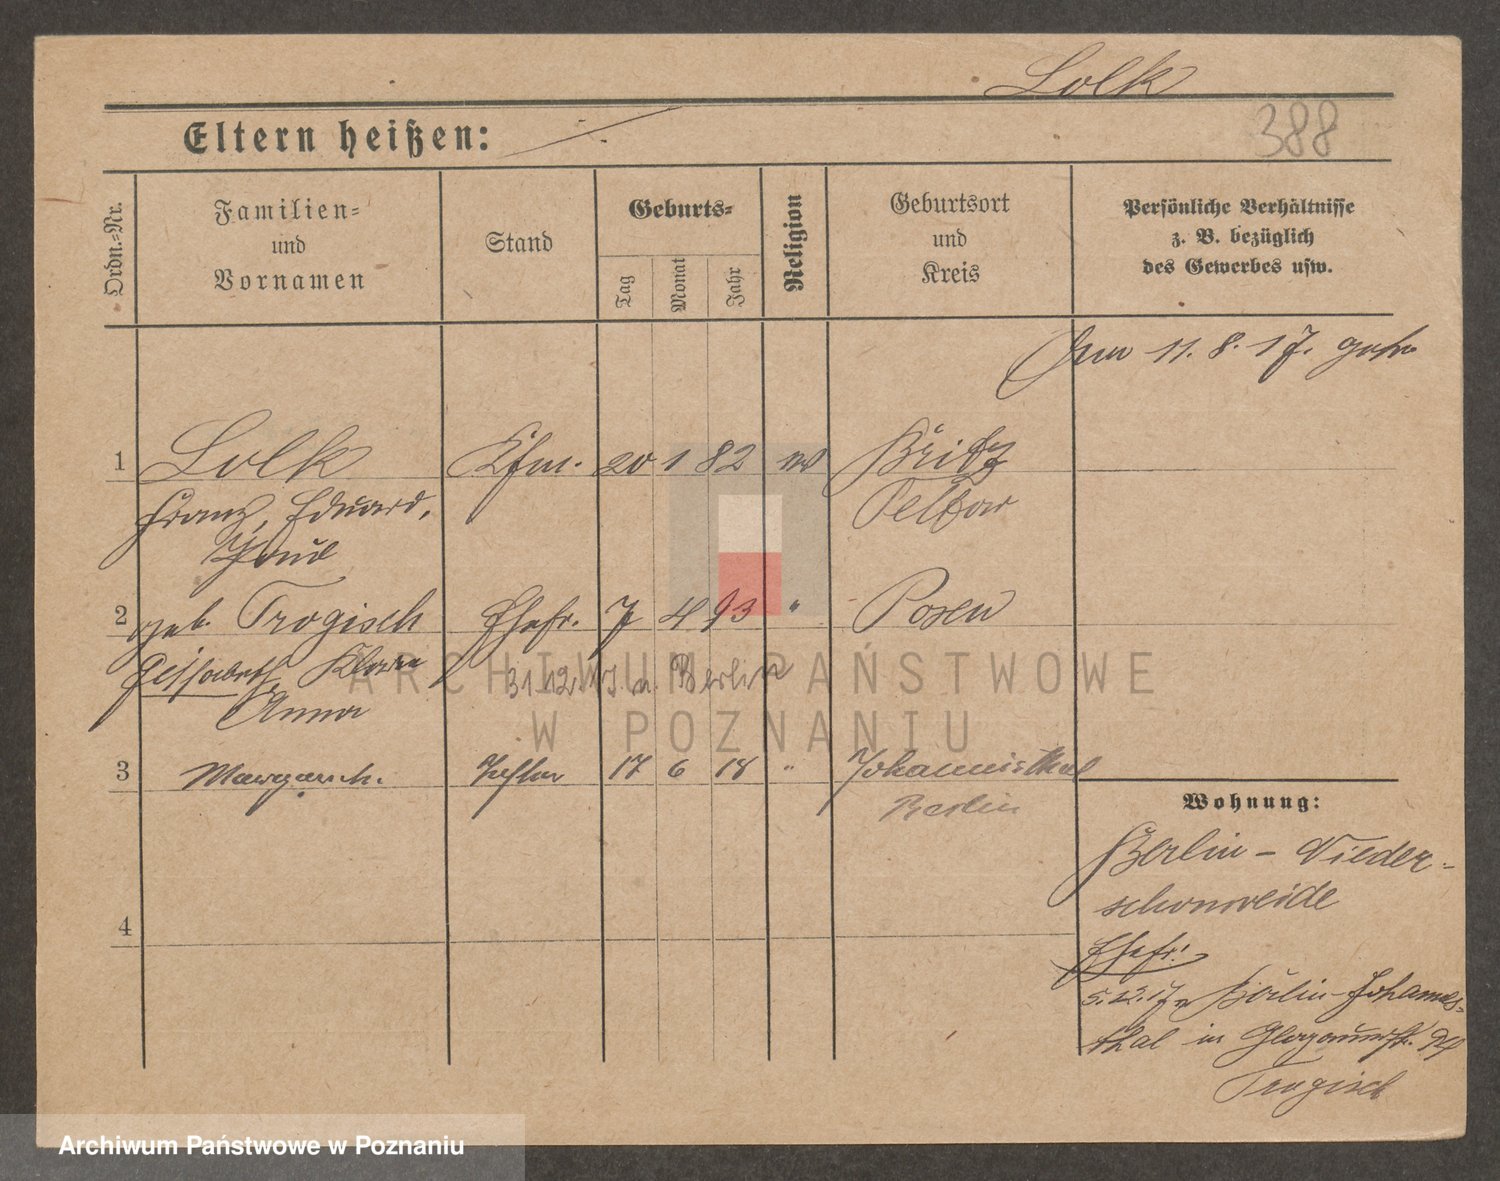 Lolk
388
Eltern heißen:
Ordn.-Nr.
Familien-
und
Vornamen
Stand
Geburts-
Tag
Monat
Jahr
Religion
Geburtsort
und
Kreis
Persönliche Verhältnisse
z. B. bezüglich
des Gewerbes usw.
11. 8. 17.
1 Lolk Kfm. 20 1 82 ev Britz
Franz, Eduard, Teltow
Paul
2 geb. Trogisch Ehefr. 7 4 93 " Posen
Elisabeth Klara
31.12. n. Berlin
Anna
3 Margareth. Tochter 17 6 18 " Johannisthal
Berlin
4
Wohnung:
Berlin - Nieder-
schonweide
Ehefr:
5.12.17 Berlin-Johannis-
thal in
Trogisch
ARCHIWUM PAŃSTWOWE
W POZNANIU
Archiwum Państwowe w Poznaniu